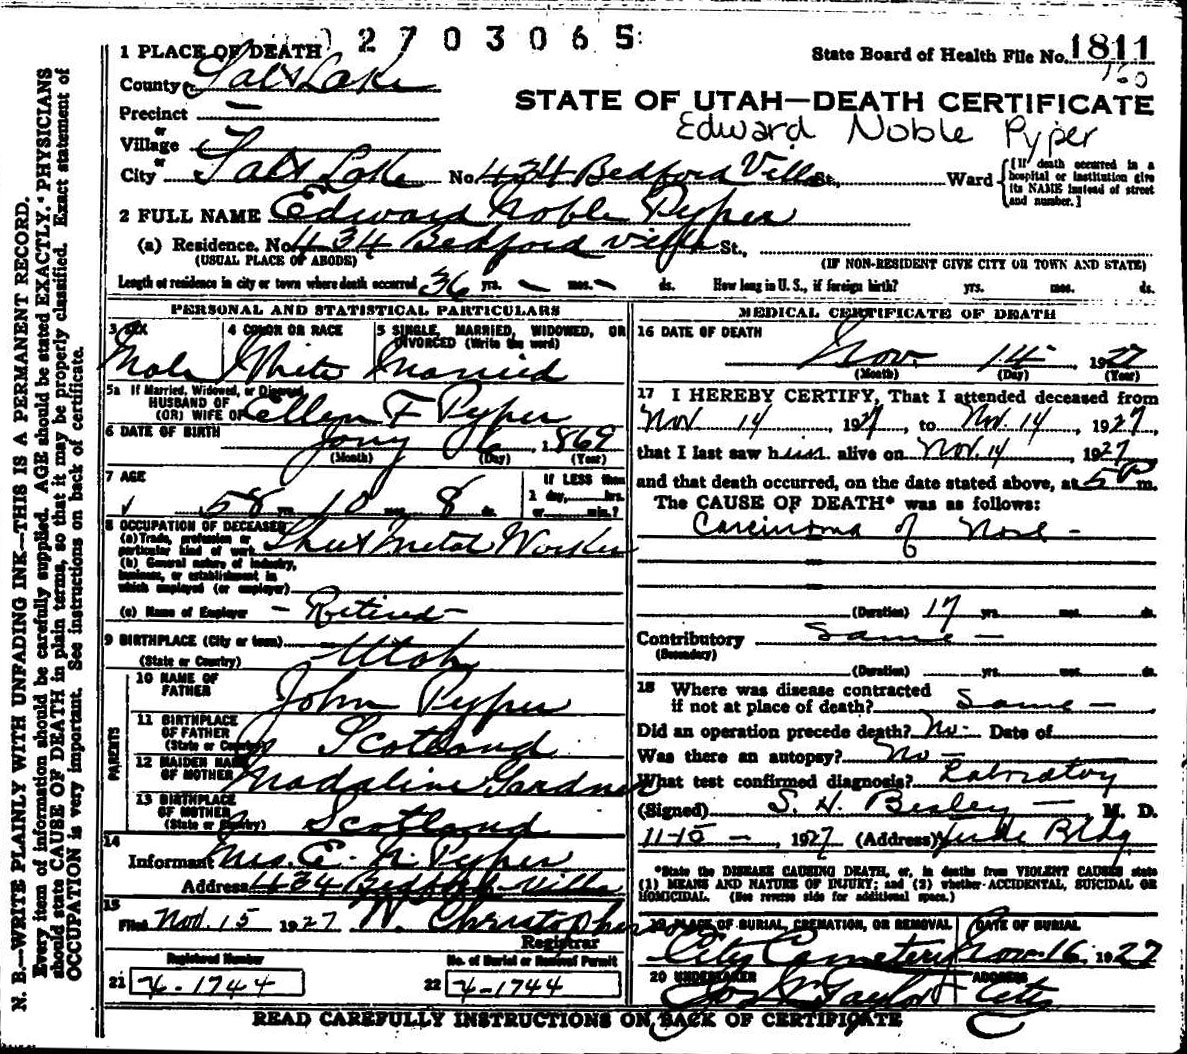 2703065
State Board of Health File No. 1811
160
STATE OF UTAH—DEATH CERTIFICATE
Edward Noble Pyper
1 PLACE OF DEATH
County Salt Lake
Precinct —
or
Village
or
City Salt Lake No. 434 Bedford Villa St., Ward [If death occurred in a hospital or institution give its NAME instead of street and number.]
2 FULL NAME Edward Noble Pyper
(a) Residence. No. 434 Bedford Villa St.,
(USUAL PLACE OF ABODE) (IF NON-RESIDENT GIVE CITY OR TOWN AND STATE)
Length of residence in city or town where death occurred 36 yrs. — mos. — ds. How long in U. S., if foreign birth? yrs. mos. ds.
PERSONAL AND STATISTICAL PARTICULARS
3 SEX 4 COLOR OR RACE 5 SINGLE, MARRIED, WIDOWED, OR DIVORCED (Write the word)
Male White Married
5a If Married, Widowed, or Divorced
HUSBAND OF
(OR) WIFE OF Ellen F Pyper
6 DATE OF BIRTH Jany 6, 1869
(Month) (Day) (Year)
7 AGE If LESS than
58 yrs. 10 mos. 8 ds. 1 day, hrs. or min.?
8 OCCUPATION OF DECEASED
(a) Trade, profession or particular kind of work Sheet Metal Worker
(b) General nature of industry, business, or establishment in which employed (or employer)
(c) Name of Employer — Retired —
9 BIRTHPLACE (City or town)
(State or Country) Utah
PARENTS
10 NAME OF FATHER John Pyper
11 BIRTHPLACE OF FATHER (State or Country) Scotland
12 MAIDEN NAME OF MOTHER Madaline Gardner
13 BIRTHPLACE OF MOTHER (State or Country) Scotland
14
Informant Mrs. E. N. Pyper
Address 434 Bedford Villa
15
Filed Nov. 15 1927 W. Christopherson
Registrar
Registered Number No. of Burial or Removal Permit
21 4-1744 22 4-1744
MEDICAL CERTIFICATE OF DEATH
16 DATE OF DEATH
Nov. 14 1927
(Month) (Day) (Year)
17 I HEREBY CERTIFY, That I attended deceased from
Nov 14, 1927, to Nov. 14, 1927,
that I last saw him alive on Nov. 14, 1927
and that death occurred, on the date stated above, at 5 P m.
The CAUSE OF DEATH* was as follows:
Carcinoma of Nose —
(Duration) 17 yrs. mos. ds.
Contributory Same —
(Secondary)
(Duration) yrs. mos. ds.
18 Where was disease contracted
if not at place of death? Same —
Did an operation precede death? No. Date of
Was there an autopsy? No —
What test confirmed diagnosis? Labratory
(Signed) S. H. Besley — M. D.
11-15 — 1927 (Address) Judge Bldg
*State the DISEASE CAUSING DEATH, or, in deaths from VIOLENT CAUSES state
(1) MEANS AND NATURE OF INJURY; and (2) whether ACCIDENTAL, SUICIDAL OR
HOMICIDAL. (See reverse side for additional space.)
19 PLACE OF BURIAL, CREMATION, OR REMOVAL DATE OF BURIAL
City Cemetery Nov. 16, 1927
20 UNDERTAKER ADDRESS
Jos Wm Taylor City
READ CAREFULLY INSTRUCTIONS ON BACK OF CERTIFICATE
N. B.—WRITE PLAINLY WITH UNFADING INK—THIS IS A PERMANENT RECORD.
Every item of information should be carefully supplied. AGE should be stated EXACTLY. PHYSICIANS
should state CAUSE OF DEATH in plain terms, so that it may be properly classified. Exact statement of
OCCUPATION is very important. See instructions on back of certificate.